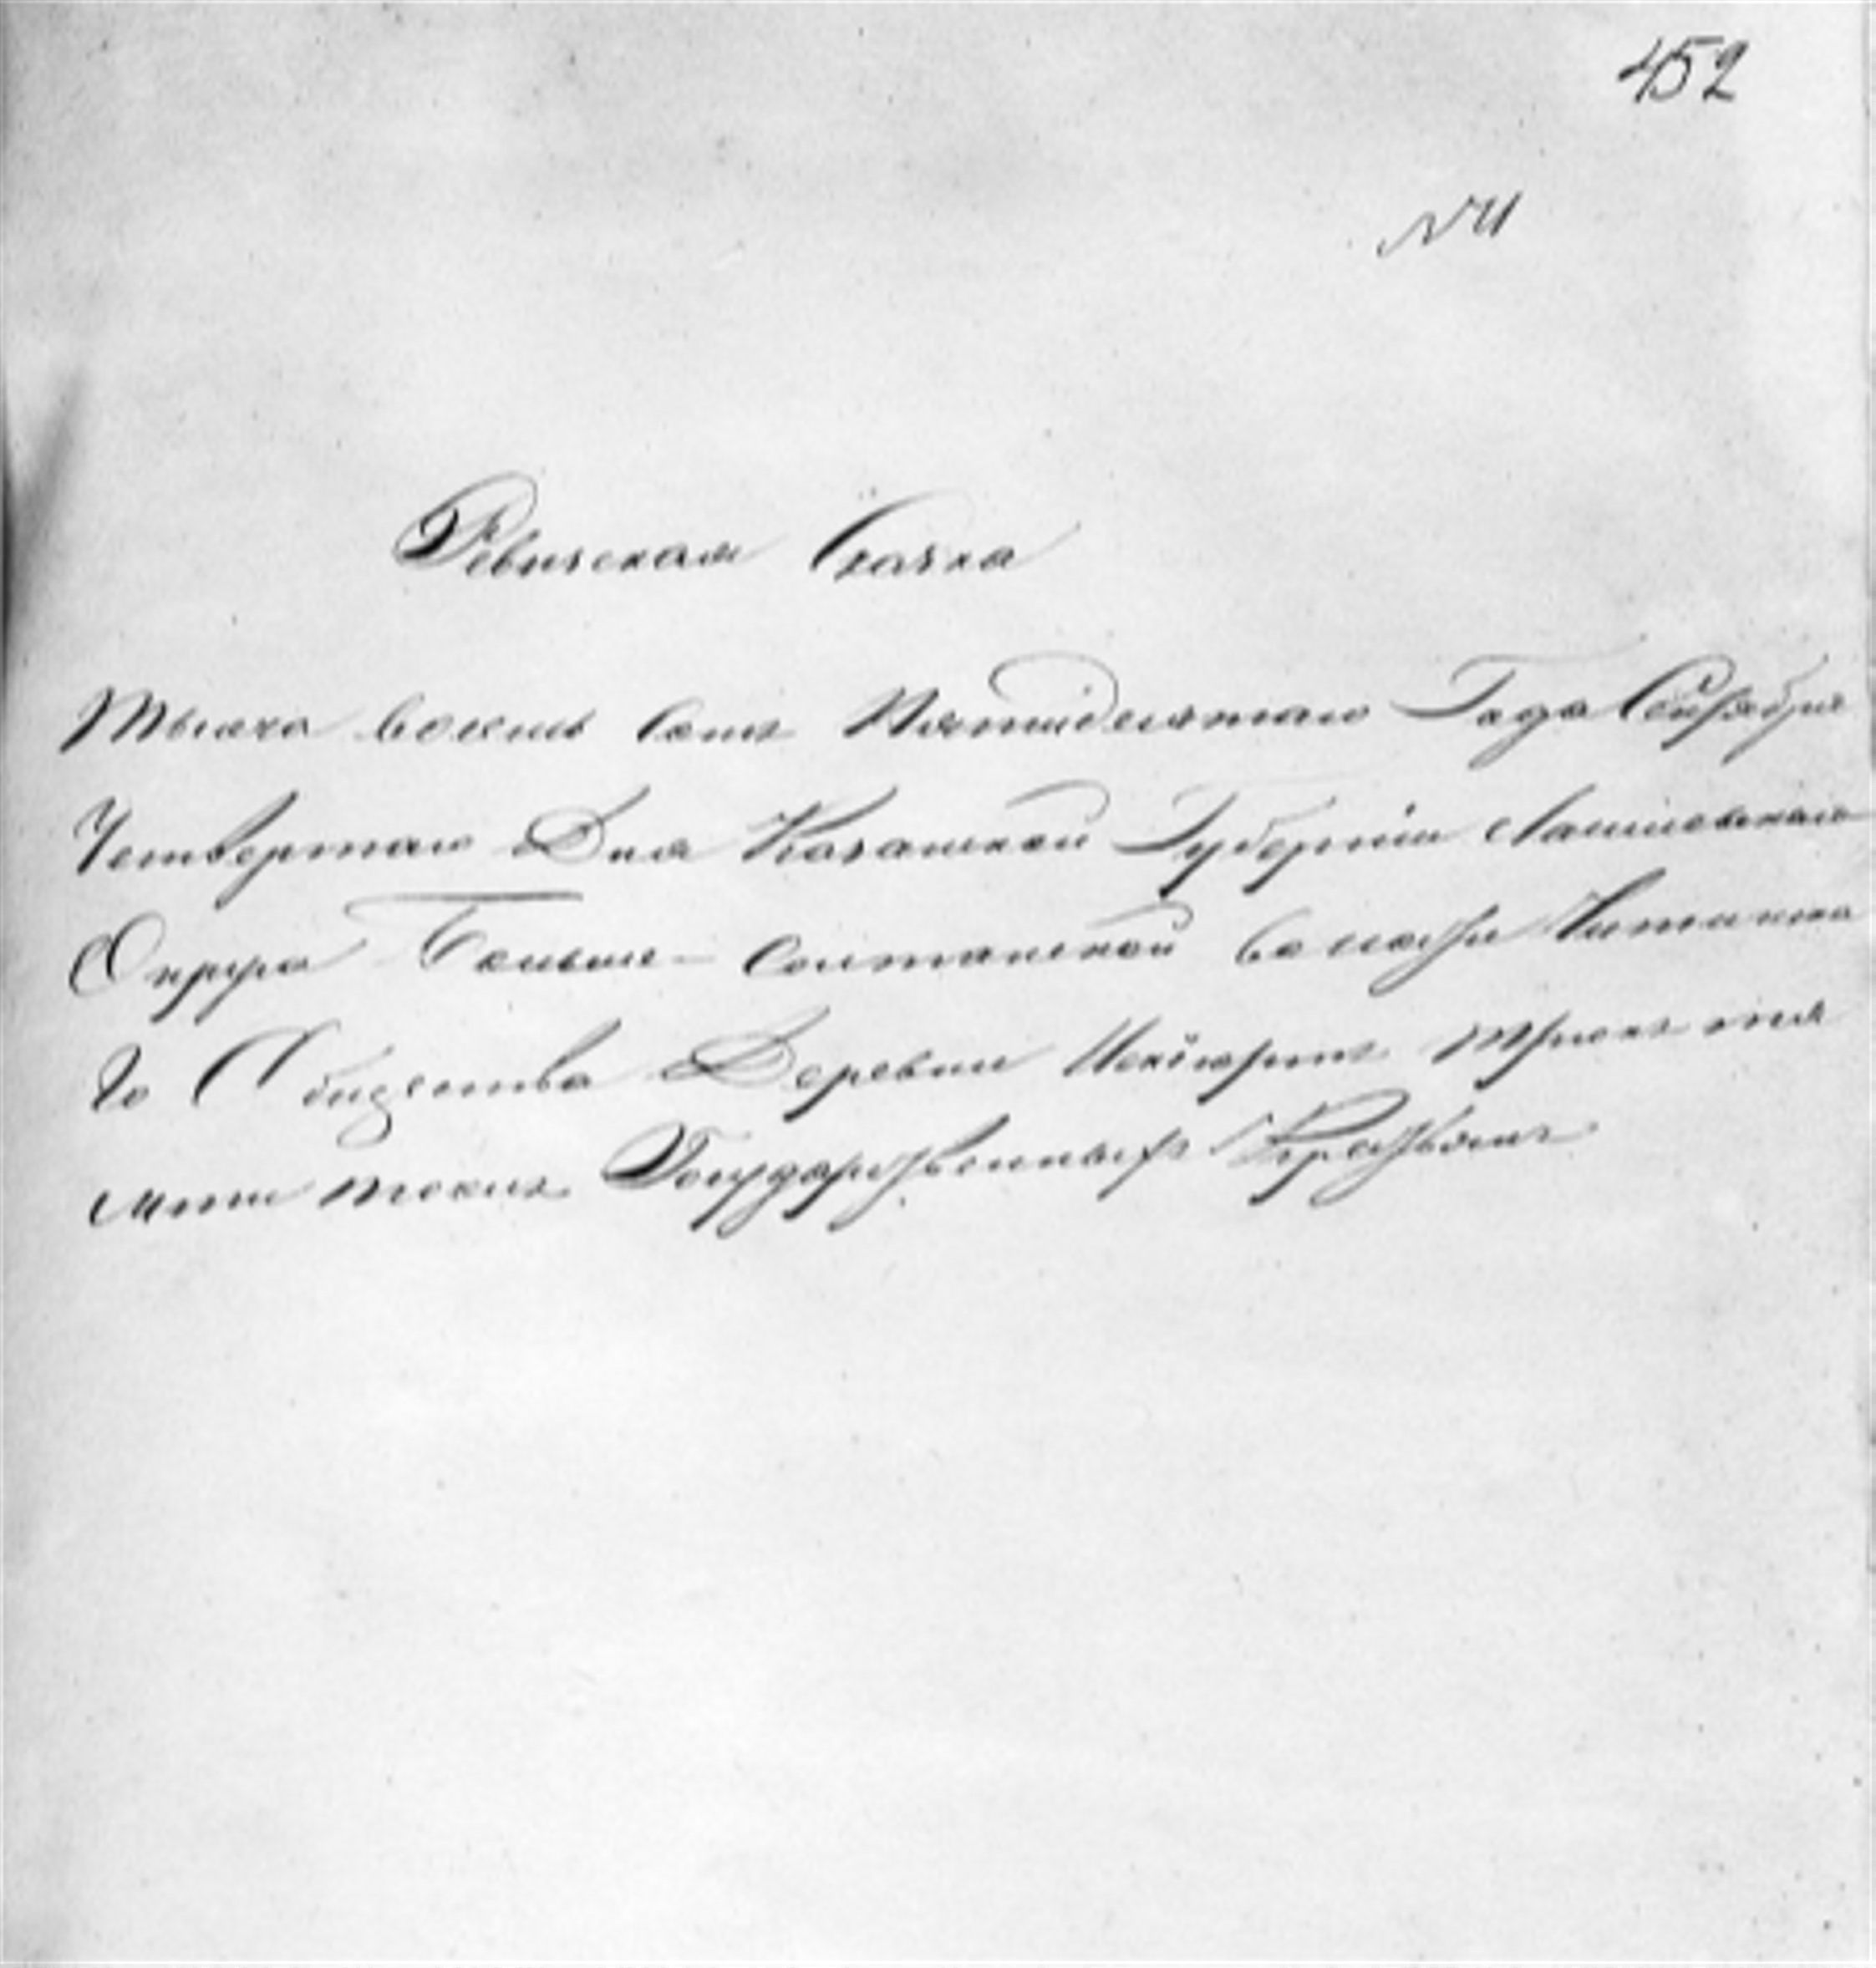 452
№ 11
Ревизская Сказка
Тысяча восемь сотъ Пятидесятаго Года Сентября
Четвертаго Дня Казанской Губерніи Лаишевскаго
Округа Больше-Солтанской волости
го Общества Деревни
Государственныхъ Крестьянъ